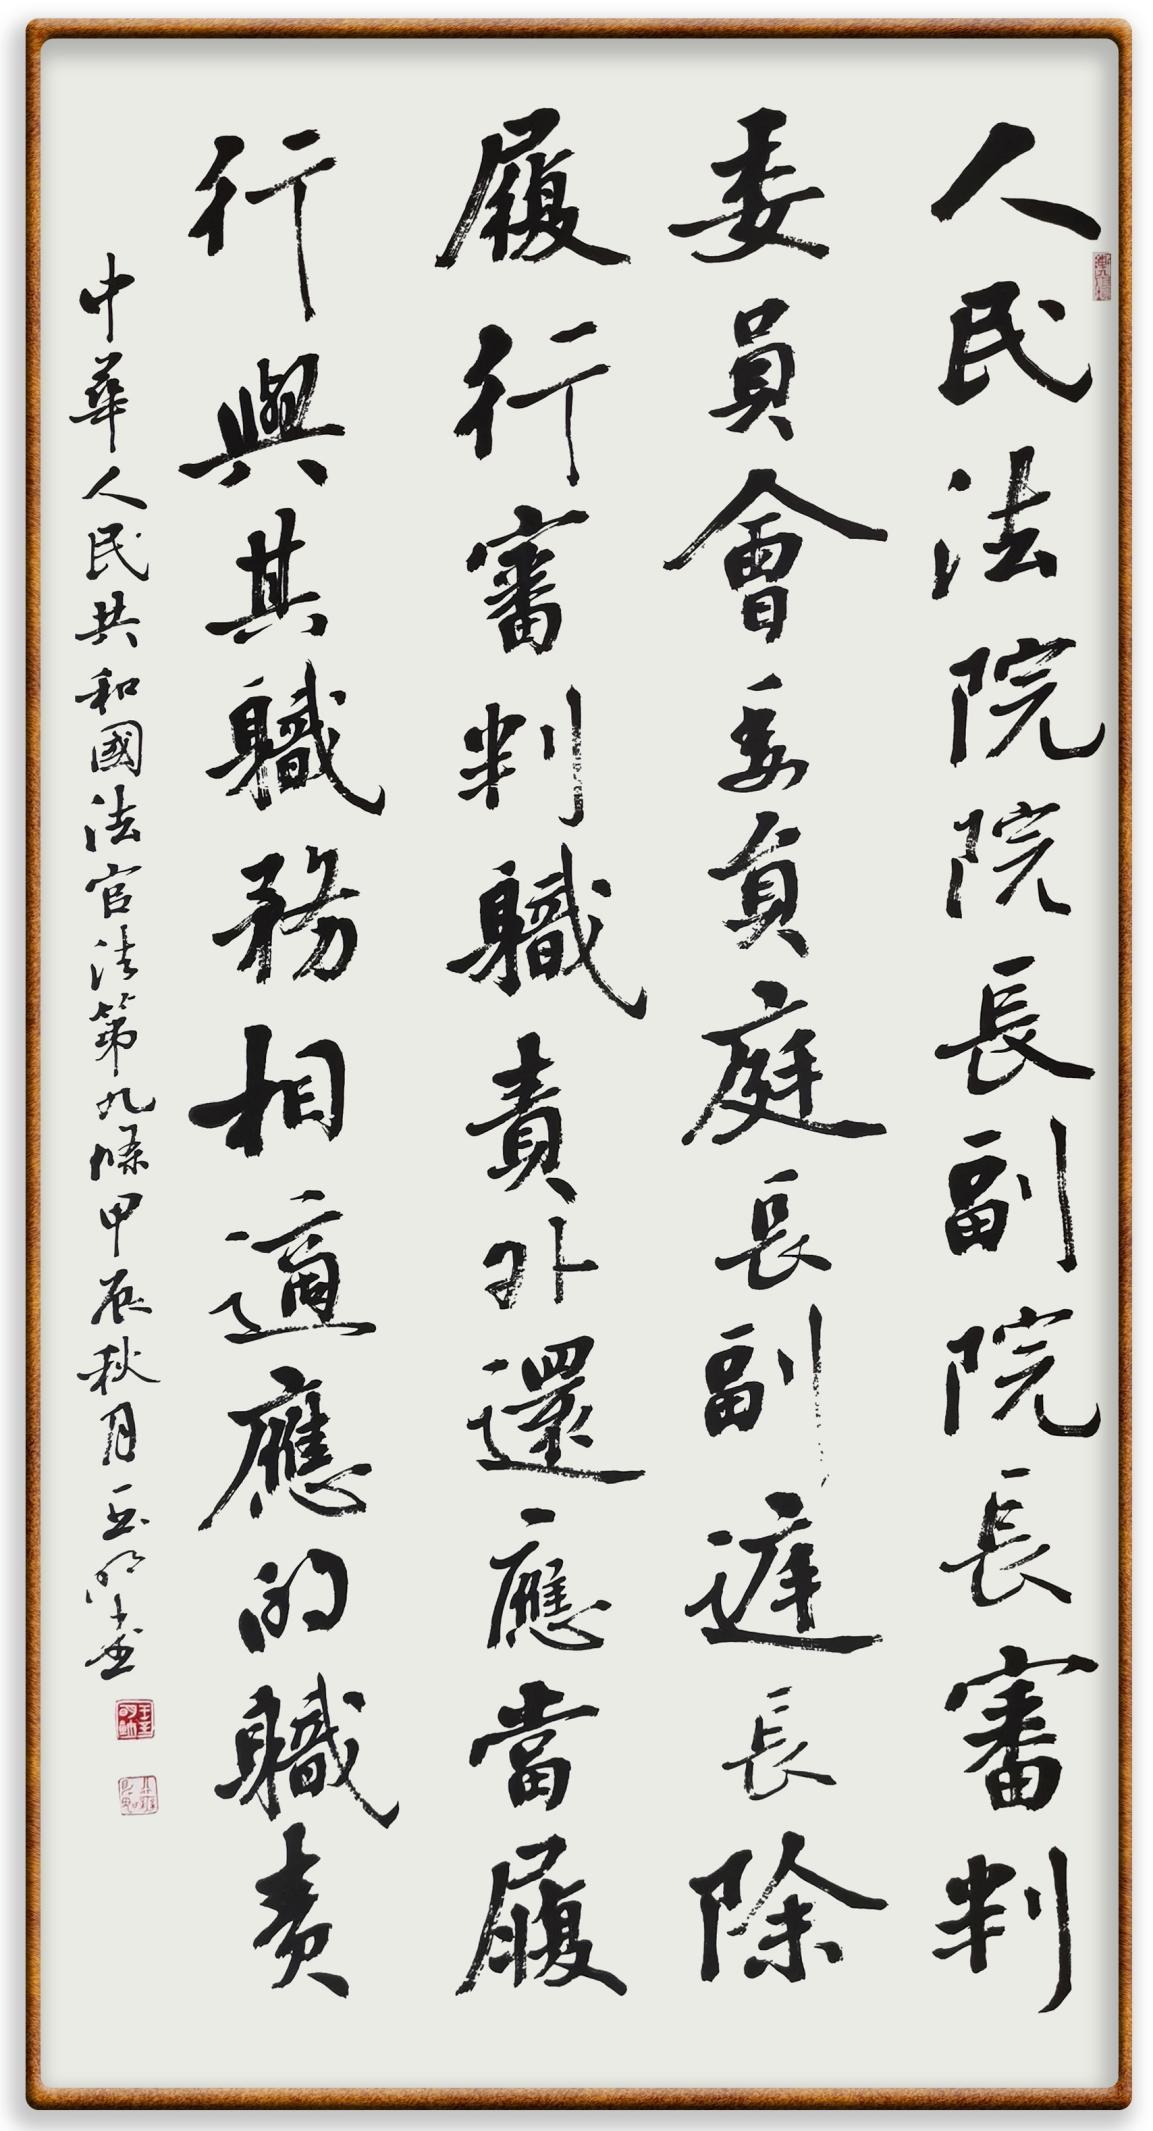 人民法院院長副院長審判
委員會委員庭長副庭長除
履行審判職責外還應當履
行與其職務相適應的職責
中華人民共和國法官法第九條甲辰秋月玉明書